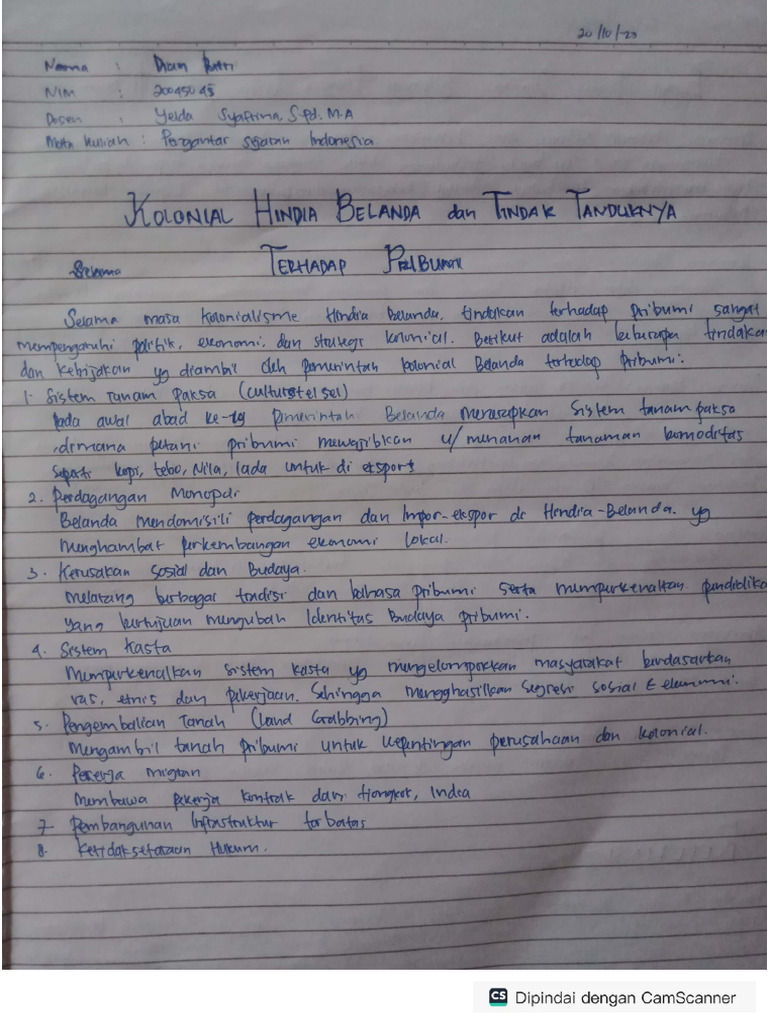 20/10/-23
Nama : Dian Putri
NIM : 20045045
Dosen : Yelda Syafrina, S.Pd. M.A
Mata kuliah : Pengantar Sejarah Indonesia
KOLONIAL HINDIA BELANDA dan TINDAK TANDUKNYA
TERHADAP PRIBUMI
Selama
Selama masa kolonialisme Hindia Belanda, tindakan terhadap pribumi sangat
mempengaruhi politik, ekonomi, dan strategi kolonial. Berikut adalah beberapa tindakan
dan kebijakan yg diambil oleh pemerintah kolonial Belanda terhadap pribumi:
1. Sistem Tanam Paksa (Cultuurstelsel)
Pada awal abad ke-19 pemerintah Belanda menerapkan Sistem tanam paksa
dimana petani pribumi mewajibkan u/ menanan tanaman komoditas
seperti kopi, tebo, Nila, lada untuk di eksport
2. Perdagangan Monopoli
Belanda mendomisili perdagangan dan Impor-ekspor di Hindia-Belanda. yg
menghambat perkembangan ekonomi lokal.
3. Kerusakan sosial dan Budaya.
melarang berbagai tradisi dan bahasa pribumi serta memperkenalkan pendidikan
yang bertujuan mengubah Identitas Budaya pribumi.
4. Sistem Kasta
Memperkenalkan sistem kasta yg mengelompokkan masyarakat berdasarkan
ras, etnis dan pekerjaan. Sehingga menghasilkan segresi sosial & ekonomi.
5. Pengembalian Tanah (Land Grabbing)
Mengambil tanah pribumi untuk kepentingan perusahaan dan kolonial.
6. Pekerja migran
Membawa pekerja kontrak dari tiongkok, India
7. Pembangunan Infrastruktur terbatas
8. Ketidaksetaraan Hukum.
CS Dipindai dengan CamScanner